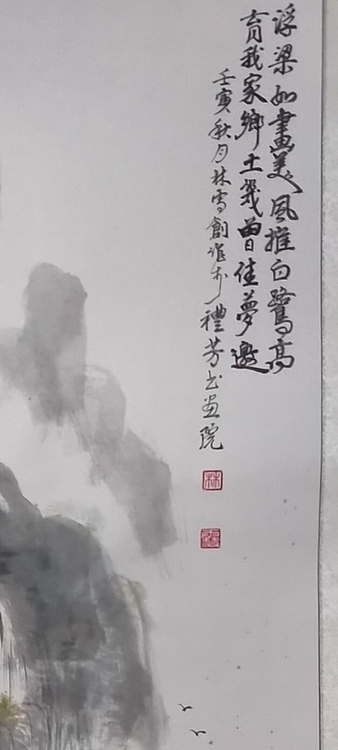 浮梁如畫美風推白鷺高
育我家鄉土幾曾佳夢邀
壬寅秋月林雪創作於禮芳书画院
林
雪